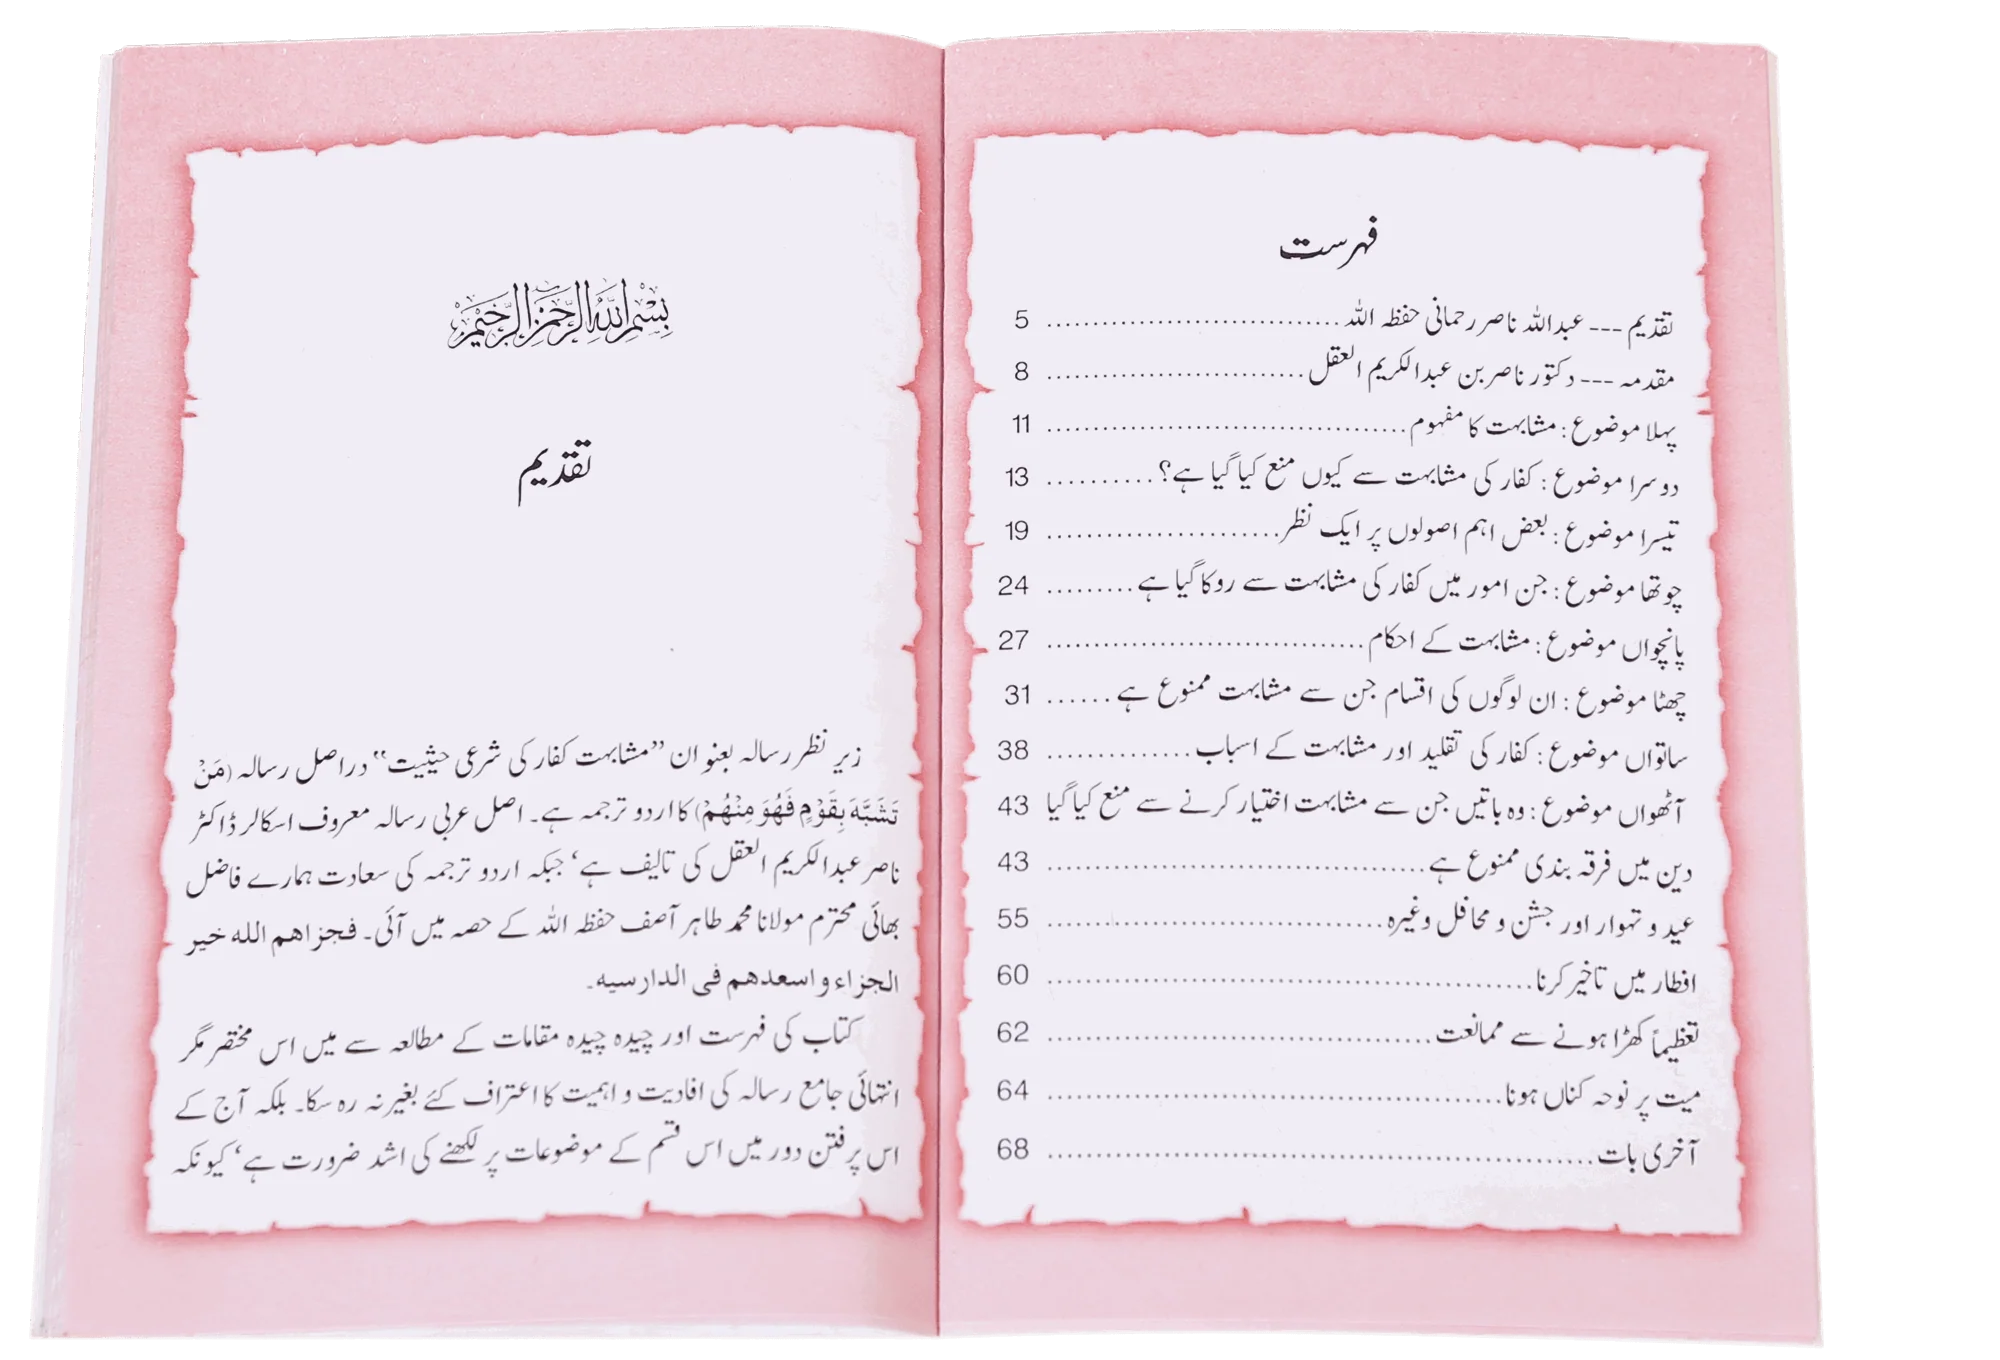 فہرست
تقدیم --- عبداللہ ناصر رحمانی حفظہ اللہ .............................. 5
مقدمہ --- دکتور ناصر بن عبدالکریم العقل .......................... 8
پہلا موضوع : مشابہت کا مفہوم ..................................... 11
دوسرا موضوع : کفار کی مشابہت سے کیوں منع کیا گیا ہے؟ ........... 13
تیسرا موضوع : بعض اہم اصولوں پر ایک نظر ........................ 19
چوتھا موضوع : جن امور میں کفار کی مشابہت سے روکا گیا ہے ......... 24
پانچواں موضوع : مشابہت کے احکام ................................ 27
چھٹا موضوع : ان لوگوں کی اقسام جن سے مشابہت ممنوع ہے ...... 31
ساتواں موضوع : کفار کی تقلید اور مشابہت کے اسباب .............. 38
آٹھواں موضوع : وہ باتیں جن سے مشابہت اختیار کرنے سے منع کیا گیا 43
دین میں فرقہ بندی ممنوع ہے ...................................... 43
عید و تہوار اور جشن و محافل وغیرہ .................................. 55
افطار میں تاخیر کرنا ................................................ 60
تعظیماً کھڑا ہونے سے ممانعت ...................................... 62
میت پر نوحہ کناں ہونا ............................................. 64
آخری بات ...................................................... 68
بِسْمِ اللهِ الرَّحْمٰنِ الرَّحِيْمِ
تقدیم
زیر نظر رسالہ بعنوان ”مشابہت کفار کی شرعی حیثیت“ دراصل رسالہ (مَنْ
تَشَبَّهَ بِقَوْمٍ فَهُوَ مِنْهُمْ) کا اردو ترجمہ ہے۔ اصل عربی رسالہ معروف اسکالر ڈاکٹر
ناصر عبدالکریم العقل کی تالیف ہے‘ جبکہ اردو ترجمہ کی سعادت ہمارے فاضل
بھائی محترم مولانا محمد طاہر آصف حفظہ اللہ کے حصہ میں آئی۔ فجزاهم الله خير
الجزاء و اسعدهم فى الدارسيه۔
کتاب کی فہرست اور چیدہ چیدہ مقامات کے مطالعہ سے میں اس مختصر مگر
انتہائی جامع رسالہ کی افادیت و اہمیت کا اعتراف کئے بغیر نہ رہ سکا۔ بلکہ آج کے
اس پر فتن دور میں اس قسم کے موضوعات پر لکھنے کی اشد ضرورت ہے‘ کیونکہ